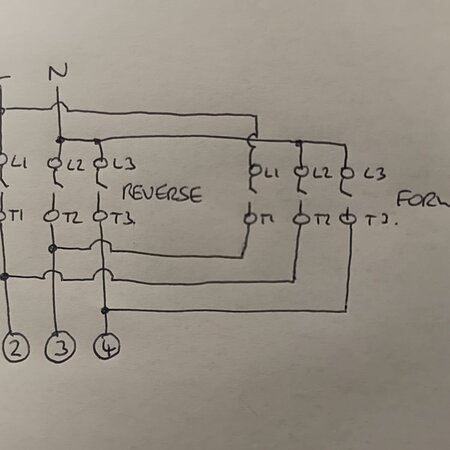 N
L1 L2 L3 L1 L2 L3
REVERSE FORW
T1 T2 T3. T1 T2 T3.
2 3 4